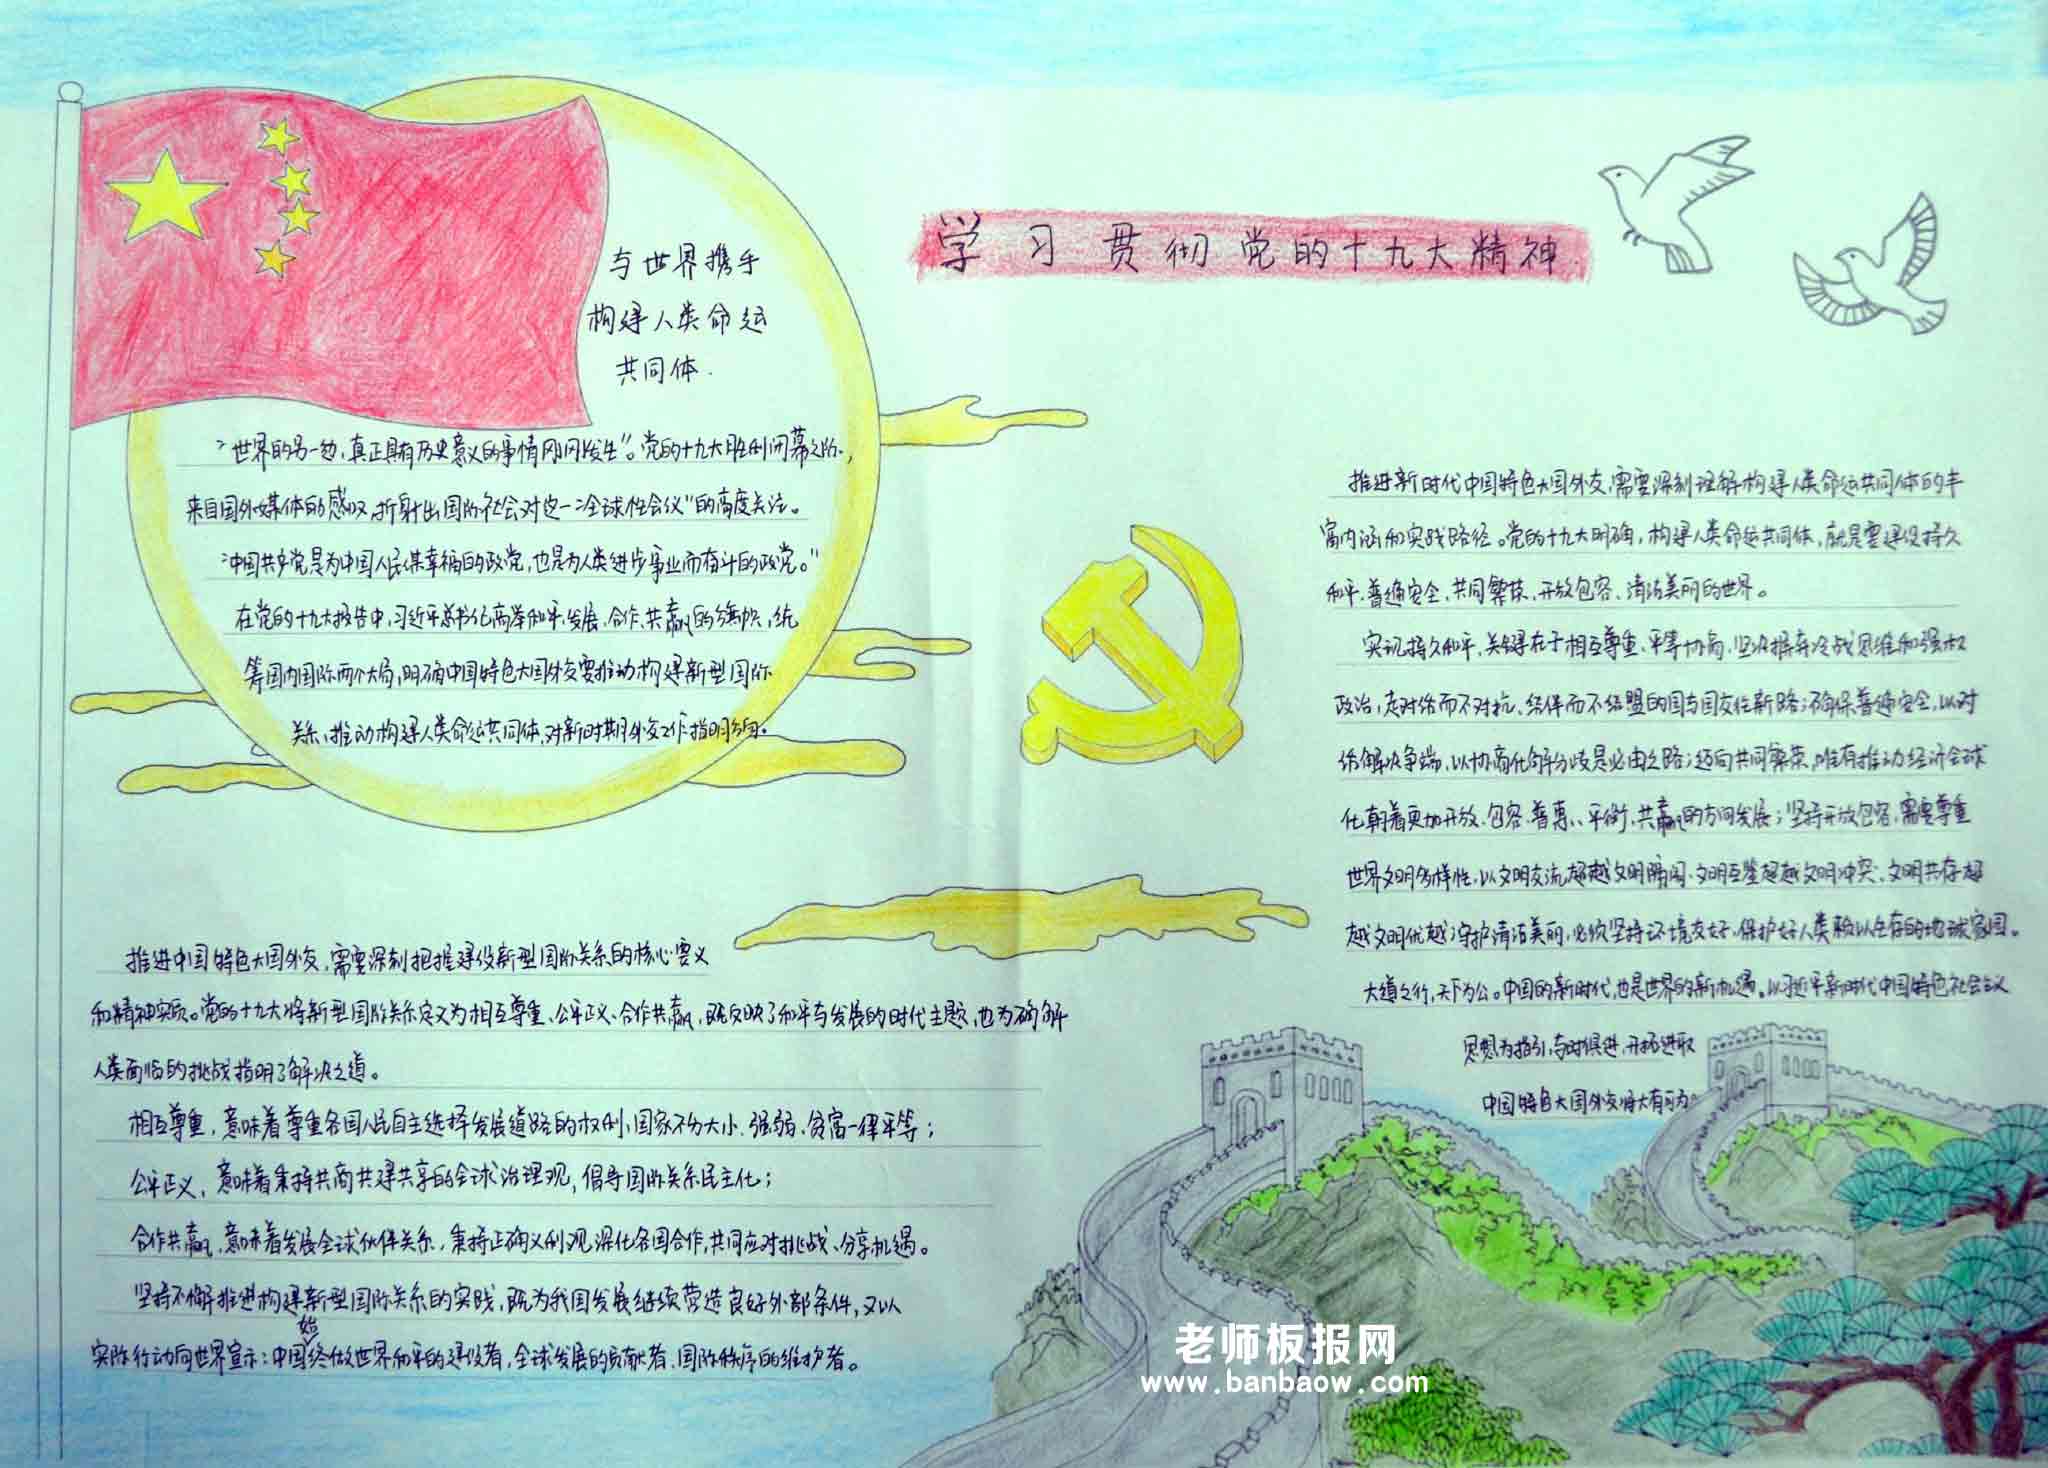 学习贯彻党的十九大精神
与世界携手
构建人类命运
共同体.
"世界的另一边,真正具有历史意义的事情刚刚发生"。党的十九大胜利闭幕之际,
来自国外媒体的感叹,折射出国际社会对这一"全球性会议"的高度关注。
"中国共产党是为中国人民谋幸福的政党,也是为人类进步事业而奋斗的政党。"
在党的十九大报告中,习近平总书记高举和平、发展、合作、共赢的旗帜,统
筹国内国际两个大局,明确中国特色大国外交要推动构建新型国际
关系,推动构建人类命运共同体,对新时期外交工作指明方向。
推进中国特色大国外交,需要深刻把握建设新型国际关系的核心要义
和精神实质。党的十九大将新型国际关系定义为相互尊重、公平正义、合作共赢,既反映了和平与发展的时代主题,也为确解
人类面临的挑战指明了解决之道。
相互尊重,意味着尊重各国人民自主选择发展道路的权利,国家不分大小、强弱、贫富一律平等;
公平正义,意味着秉持共商共建共享的全球治理观,倡导国际关系民主化;
合作共赢,意味着发展全球伙伴关系,秉持正确义利观深化各国合作,共同应对挑战、分享机遇。
坚持不懈推进构建新型国际关系的实践,既为我国发展继续营造良好外部条件,又以
实际行动向世界宣示:中国始终做世界和平的建设者,全球发展的贡献者、国际秩序的维护者。
推进新时代中国特色大国外交,需要深刻理解构建人类命运共同体的丰
富内涵和实践路径。党的十九大明确,构建人类命运共同体,就是要建设持久
和平、普遍安全、共同繁荣、开放包容、清洁美丽的世界。
实现持久和平,关键在于相互尊重、平等协商,坚决摒弃冷战思维和强权
政治,走对话而不对抗、结伴而不结盟的国与国交往新路;确保普遍安全,以对
话解决争端,以协商化解分歧是必由之路;迈向共同繁荣,唯有推动经济全球
化朝着更加开放、包容、普惠、平衡、共赢的方向发展;坚持开放包容,需要尊重
世界文明多样性,以文明交流超越文明隔阂、文明互鉴超越文明冲突、文明共存超
越文明优越;守护清洁美丽,必须坚持环境友好,保护好人类赖以生存的地球家园。
大道之行,天下为公。中国的新时代,也是世界的新机遇。以习近平新时代中国特色社会主义
思想为指引,与时俱进,开拓进取
中国特色大国外交将大有可为。
老师板报网
www.banbaow.com